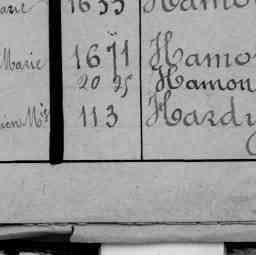 arie 1633 Hamo
Marie 1671 Hamo
20 25 Hamon
ien Mie 113 Hardy